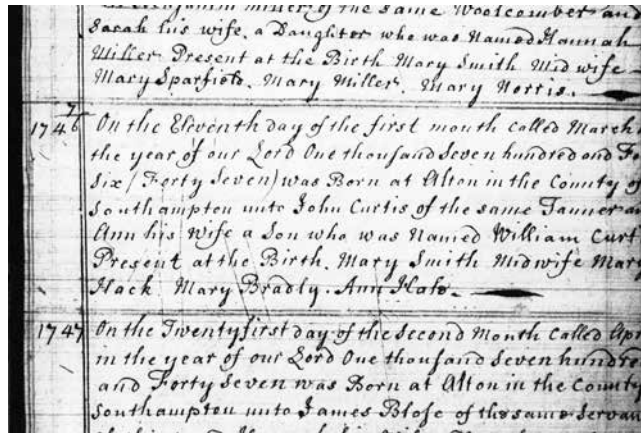 Benjamin Miller of the same Woolcomber and
Sarah his wife, a Daughter who was Named Hannah
Miller Present at the Birth Mary Smith Midwife
Mary Mary Miller. Mary Norris.
1746/7 On the Eleventh day of the first month Called March
the year of our Lord One thousand Seven hundred and F
Six/Forty Seven) was Born at Alton in the County of
Southampton unto John Curtis of the same Tanner a
Ann his Wife a Son who was Named William Curt
Present at the Birth. Mary Smith Midwife Mar
Hack Mary Bradly. Ann
1747 On the Twentyfirst day of the Second Month Called Apr
in the year of our Lord One thousand Seven hundre
and Forty Seven was Born at Alton in the County
Southampton unto James of the same Servan